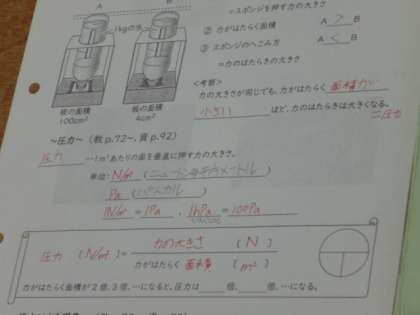 =スポンジを押す力の大きさ
A B
1kgの水
② 力がはたらく面積 A > B
③ スポンジのへこみ方 A < B
=力のはたらきの大きさ
板の面積 板の面積
100cm² 4cm²
<考察>
力の大きさが同じでも、力がはたらく 面積が
小さい ほど、力のはたらきは大きくなる。
=圧力
~圧力~ (教 p.72~、資 p.92)
圧力 …1m²あたりの面を垂直に押す力の大きさ。
単位: N/m² (ニュートン毎平方メートル)
Pa (パスカル)
1N/m² = 1Pa . 1hPa = 100Pa
圧力 (N/m²) = 力の大きさ (N)
力がはたらく 面積 (m²)
力がはたらく面積が2倍、3倍、…になると、圧力は 倍、 倍、…になる。